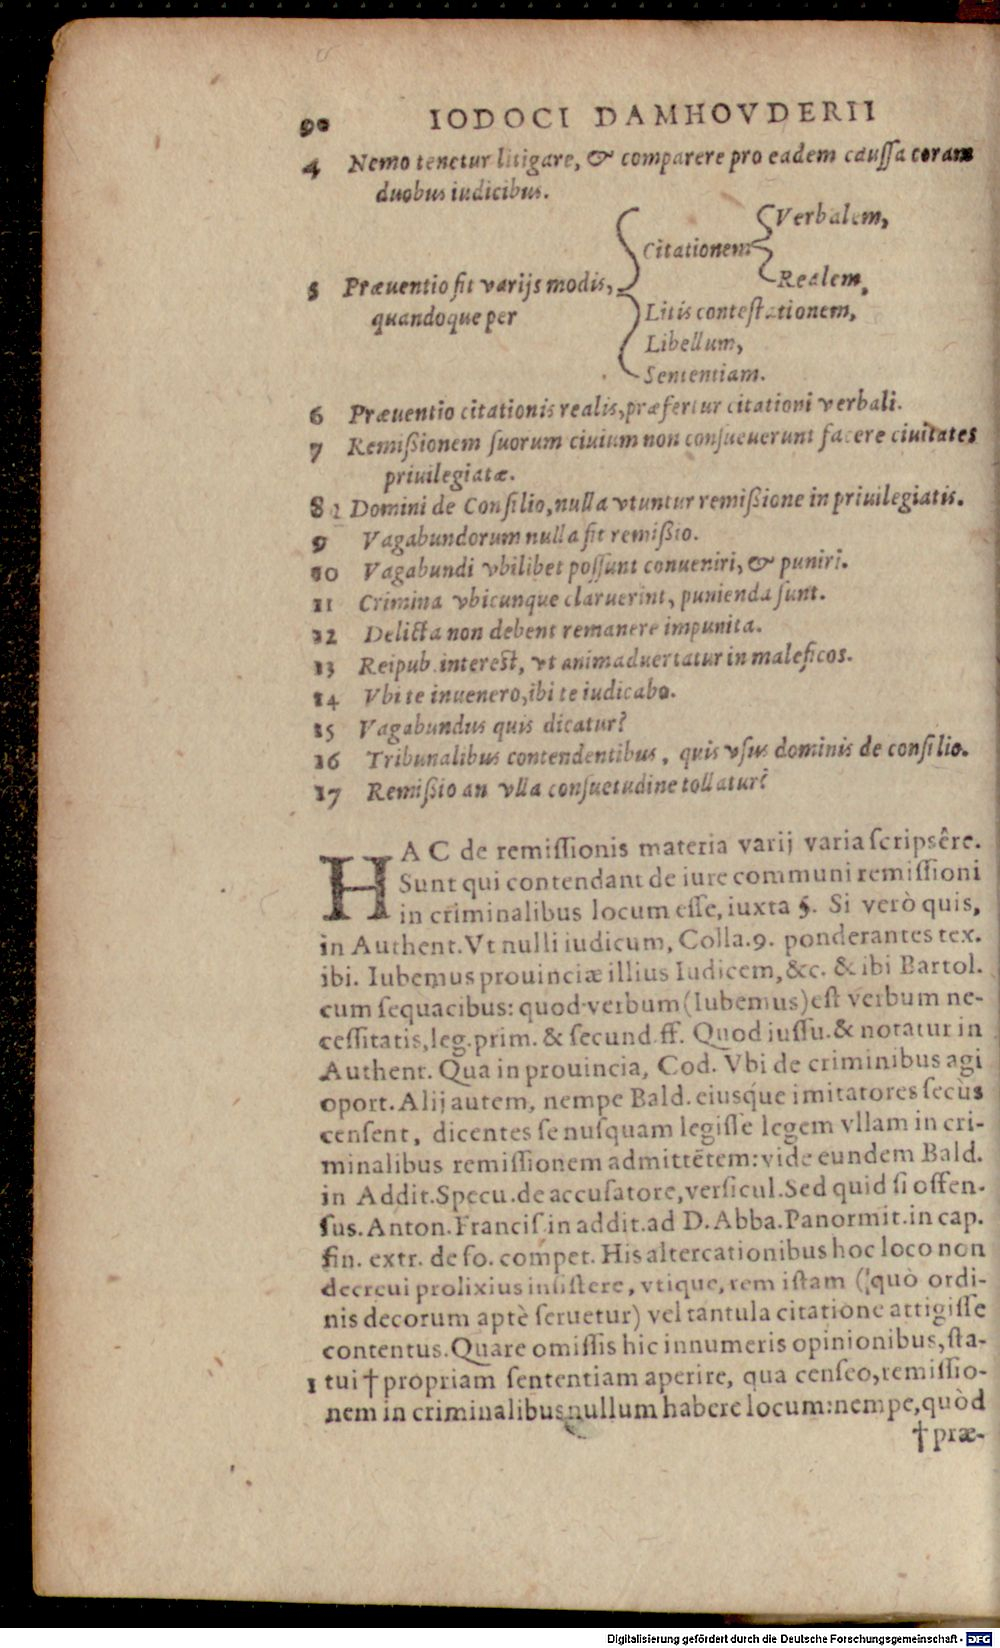 90 IODOCI DAMHOVDERII
4 Nemo tenetur litigare, & comparere pro eadem caussa coram
duobus iudicibus.
Verbalem,
Citationem
Realem,
5 Præuentio fit varijs modis,
quandoque per
Litis contestationem,
Libellum,
Sententiam.
6 Præuentio citationis realis, præfertur citationi verbali.
7 Remißionem suorum ciuium non consueuerunt facere ciuitates
priuilegiatæ.
8 Domini de Consilio, nulla vtuntur remißione in priuilegiatis.
9 Vagabundorum nulla fit remißio.
10 Vagabundi vbilibet possunt conueniri, & puniri.
11 Crimina vbicunque claruerint, punienda sunt.
12 Delicta non debent remanere impunita.
13 Reipub. interest, vt animaduertatur in maleficos.
14 Vbi te inuenero, ibi te iudicabo.
15 Vagabundus quis dicatur?
16 Tribunalibus contendentibus, quis vsus dominis de consilio.
17 Remißio an vlla consuetudine tollatur?
HAC de remissionis materia varij varia scripsêre.
Sunt qui contendant de iure communi remissioni
in criminalibus locum esse, iuxta §. Si verò quis,
in Authent. Vt nulli iudicum, Colla. 9. ponderantes tex.
ibi. Iubemus prouinciæ illius Iudicem, &c. & ibi Bartol.
cum sequacibus: quod verbum (Iubemus) est verbum ne-
cessitatis, leg. prim. & secund. ff. Quod iussu. & notatur in
Authent. Qua in prouincia, Cod. Vbi de criminibus agi
oport. Alij autem, nempe Bald. eiusq́ue imitatores secùs
censent, dicentes se nusquam legisse legem vllam in cri-
minalibus remissionem admittẽtem: vide eundem Bald.
in Addit. Specu. de accusatore, versicul. Sed quid si offen-
sus. Anton. Francis. in addit. ad D. Abba. Panormit. in cap.
fin. extr. de fo. compet. His altercationibus hoc loco non
decreui prolixius insistere, vtique, rem istam (quò ordi-
nis decorum aptè seruetur) vel tantula citatione attigisse
contentus. Quare omissis hic innumeris opinionibus, sta-
1 tui † propriam sententiam aperire, qua censeo, remissio-
nem in criminalibus nullum habere locum: nempe, quòd
† præ-
Digitalisierung gefördert durch die Deutsche Forschungsgemeinschaft - DFG